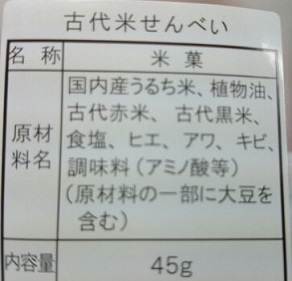 古代米せんべい
名称 米菓
原材料名 国内産うるち米、植物油、
古代赤米、古代黒米、
食塩、ヒエ、アワ、キビ、
調味料(アミノ酸等)
(原材料の一部に大豆を
含む)
内容量 45g